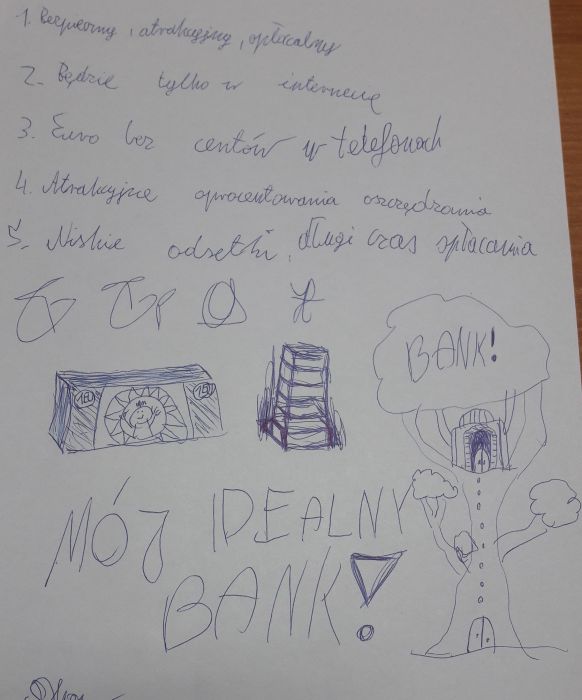 1. Bezpieczny, atrakcyjny, opłacalny
2. Będzie tylko w internecie
3. Euro bez centów w telefonach
4. Atrakcyjne oprocentowania oszczędzania
5. Niskie odsetki, długi czas spłacania
BANK!
150 150
MÓJ IDEALNY
BANK!